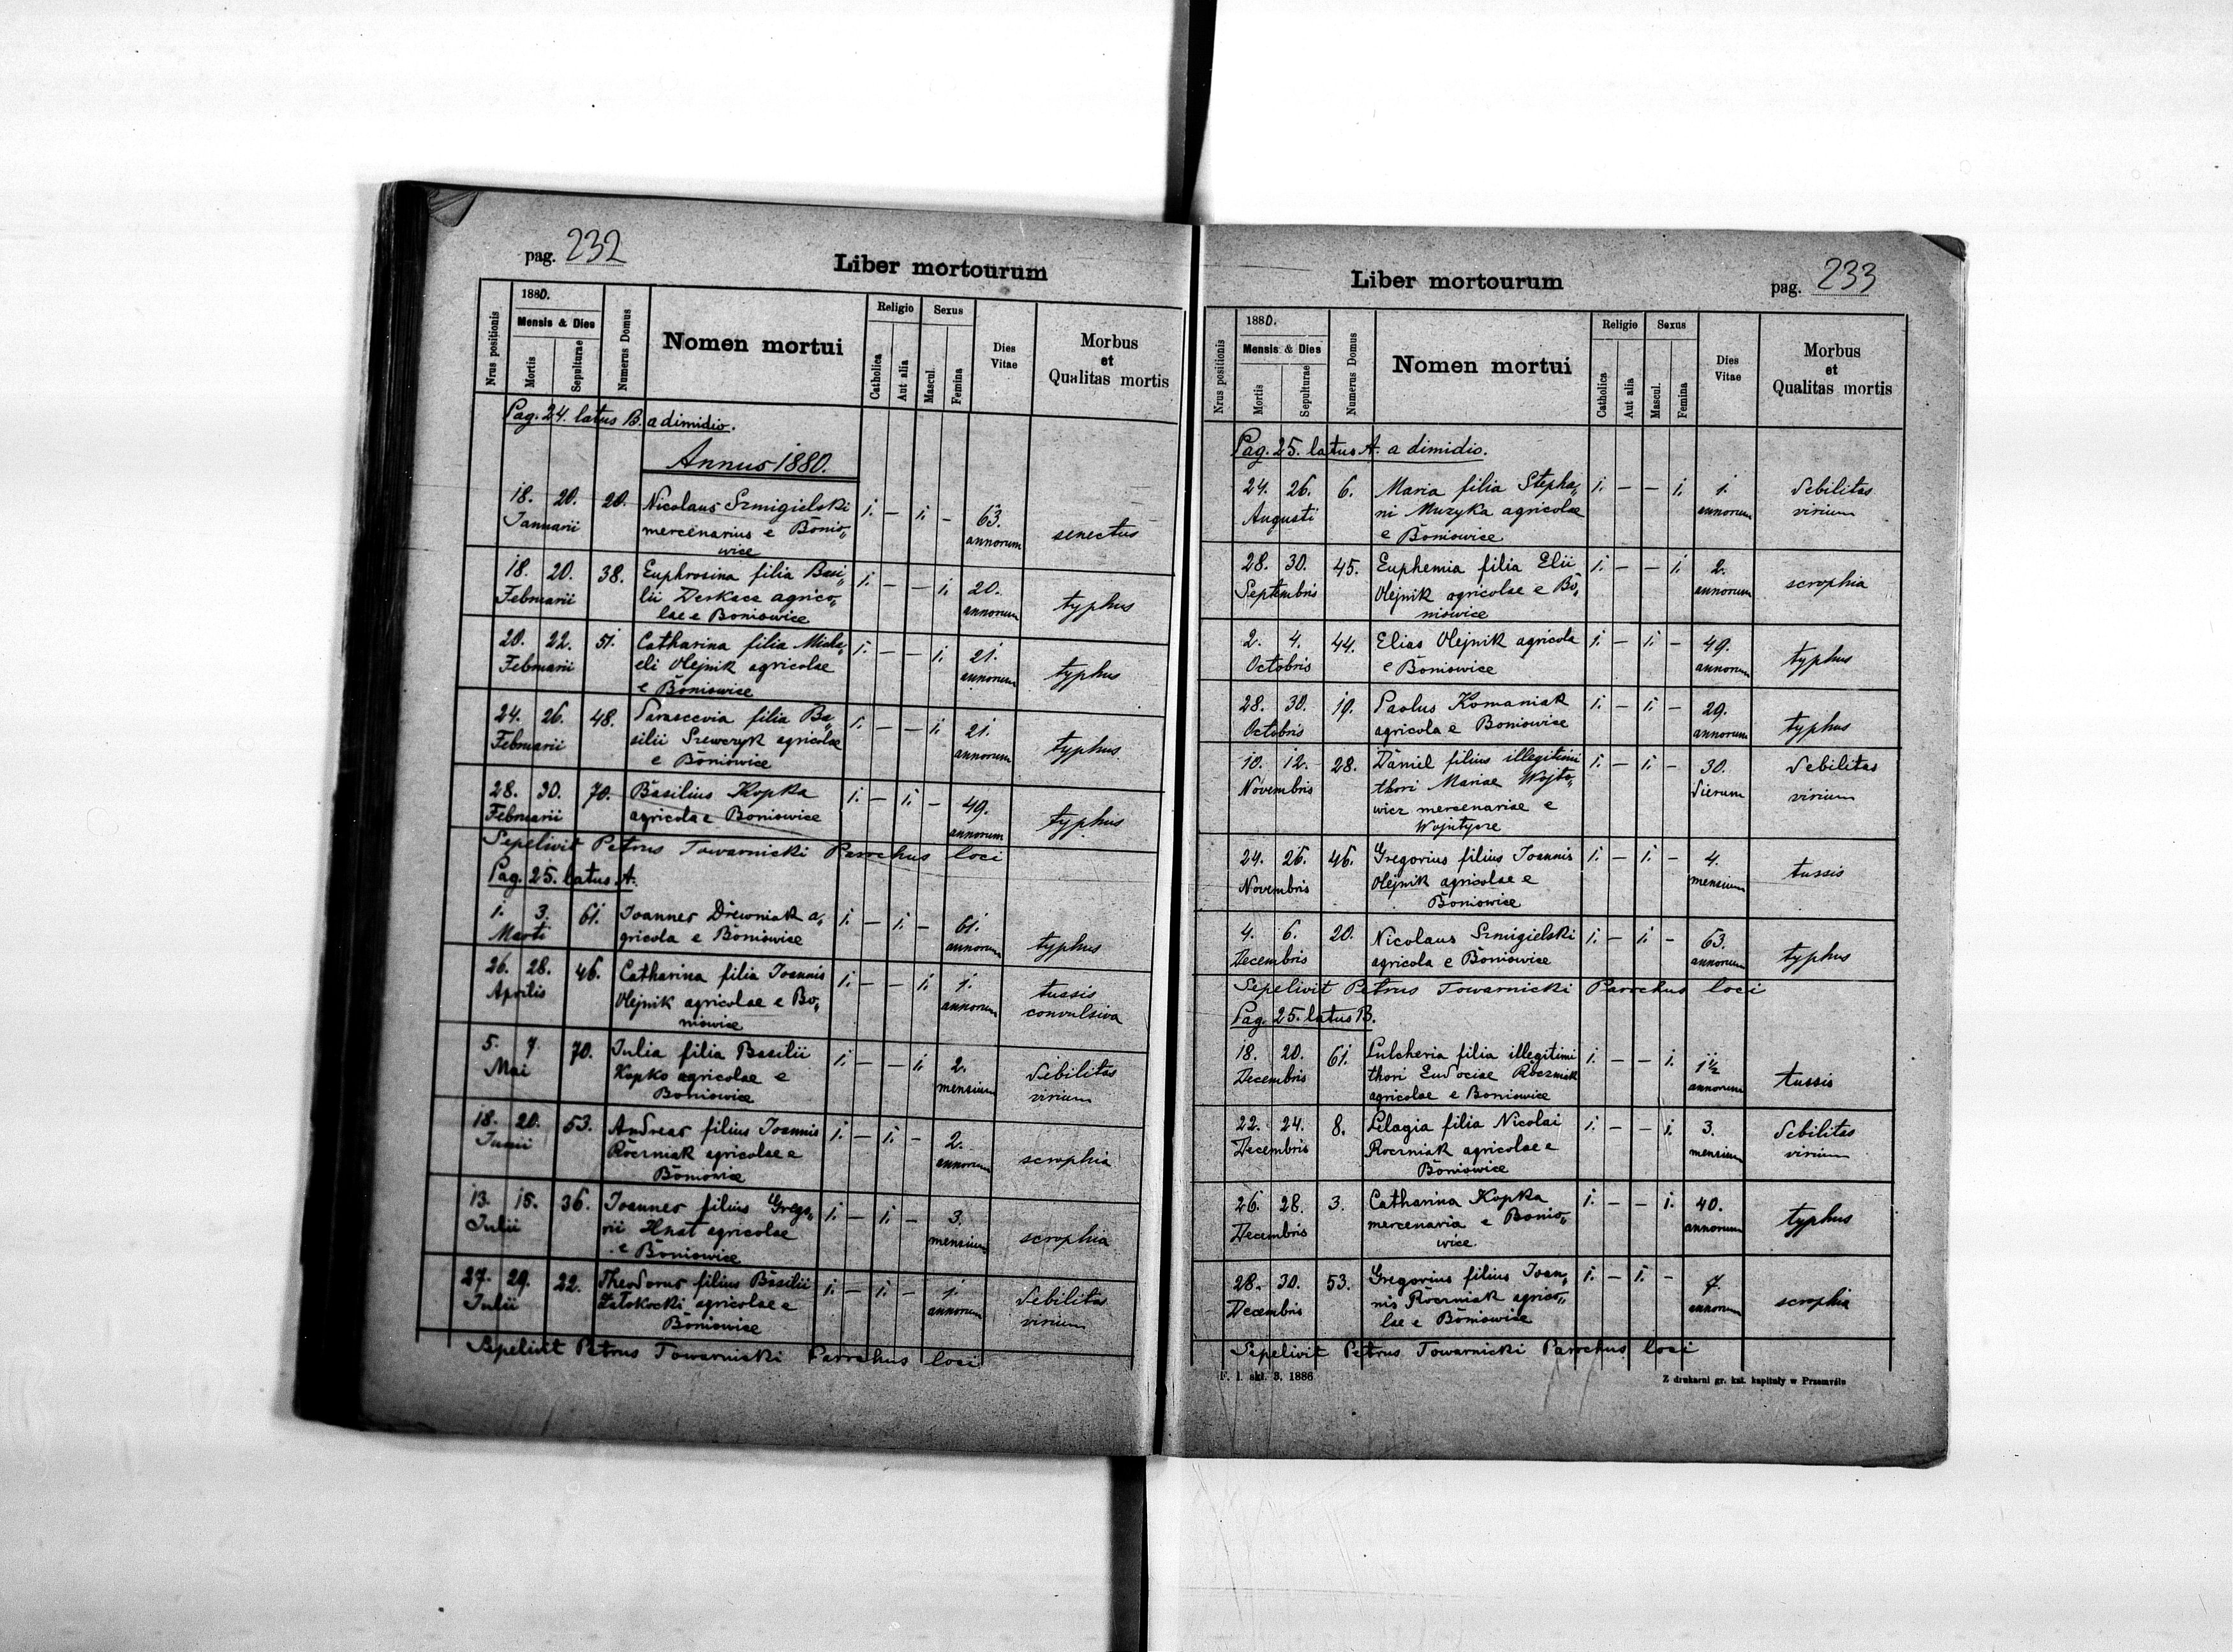 pag. 232
Liber mortourum
Nrus positionis
1880.
Mensis & Dies
Mortis
Sepulturae
Numerus Domus
Nomen mortui
Religio
Catholica
Aut alia
Sexus
Mascul.
Femina
Dies
Vitae
Morbus
et
Qualitas mortis
Pag. 24. latus B. a dimidio.
Annus 1880.
18. 20. 20. Nicolaus Szmigielski 1. — 1. — 63.
Januarii mercenarius e Bonio„ annorum senectus
wice
18. 20. 38. Euphrosina filia Basi„ 1. — — 1. 20.
Februarii lii Deskacz agrico„ annorum typhus
lae e Boniowice
20. 22. 51. Catharina filia Micha„ 1. — — 1. 21.
Februarii eli Olejnik agricolae annorum typhus
e Boniowice
24. 26. 48. Parascevia filia Ba„ 1. — — 1. 21.
Februarii silii Szewczyk agricolae annorum typhus
e Boniowice
28. 30. 70. Basilius Kopka 1. — 1. — 49.
Februarii agricola e Boniowice annorum typhus
Sepelivit Petrus Towarnicki Parochus loci
Pag. 25. latus A.
1. 3. 61. Joannes Drewniak a„ 1. — 1. — 61.
Marti gricola e Boniowice annorum typhus
26. 28. 46. Catharina filia Joannis 1. — — 1. 1. tussis
Aprilis Olejnik agricolae e Bo„ annorum convulsiva
niowice
5. 7. 70. Julia filia Basilii 1. — — 1. 2. debilitas
Mai Kopko agricolae e mensium virium
Boniowice
18. 20. 53. Andreas filius Joannis 1. — 1. — 2.
Junii Roczniak agricolae e annorum scrophia
Boniowice
13. 15. 36. Joannes filius Grego„ 1. — 1. — 3.
Julii rii Hnat agricolae mensium scrophia
e Boniowice
27. 29. 22. Theodorus filius Basilii 1. — 1. — 1. debilitas
Julii Załokocki agricolae e annorum virium
Boniowice
Sepelivit Petrus Towarnicki Parochus loci
Liber mortourum
pag. 233
Nrus positionis
1880.
Mensis & Dies
Mortis
Sepulturae
Numerus Domus
Nomen mortui
Religio
Catholica
Aut alia
Sexus
Mascul.
Femina
Dies
Vitae
Morbus
et
Qualitas mortis
Pag. 25. latus A. a dimidio.
24. 26. 6. Maria filia Stepha„ 1. — — 1. 1. debilitas
Augusti ni Muzyka agricolae annorum virium
e Boniowice
28. 30. 45. Euphemia filia Elii 1. — — 1. 2. scrophia
Septembris Olejnik agricolae e Bo„ annorum
niowice
2. 4. 44. Elias Olejnik agricola 1. — 1. — 49.
Octobris e Boniowice annorum typhus
28. 30. 19. Paolus Komaniak 1. — 1. — 29.
Octobris agricola e Boniowice annorum typhus
10. 12. 28. Daniel filius illegitimi 1. — 1. — 30. debilitas
Novembris thori Mariae Wojto„ dierum virium
wicz mercenariae e
Wojutycze
24. 26. 46. Gregorius filius Joannis 1. — 1. — 4.
Novembris Olejnik agricolae e mensium tussis
Boniowice
4. 6. 20. Nicolaus Szmigielski 1. — 1. — 63.
Decembris agricola e Boniowice annorum typhus
Sepelivit Petrus Towarnicki Parochus loci
Pag. 25. latus B.
18. 20. 61. Pulcheria filia illegitimi 1. — — 1. 1½
Decembris thori Eudociae Roczniak annorum tussis
agricolae e Boniowice
22. 24. 8. Pelagia filia Nicolai 1. — — 1. 3. debilitas
Decembris Roczniak agricolae e mensium virium
Boniowice
26. 28. 3. Catharina Kopka 1. — — 1. 40.
Decembris mercenaria e Bonio„ annorum typhus
wice.
28. 30. 53. Gregorius filius Joan„ 1. — 1. — 7.
Decembris nis Roczniak agrico„ annorum scrophia
lae e Boniowice
Sepelivit Petrus Towarnicki Parochus loci
F. l. skł. 3. 1886
Z drukarni gr. kat. kapituły w Przemyślu